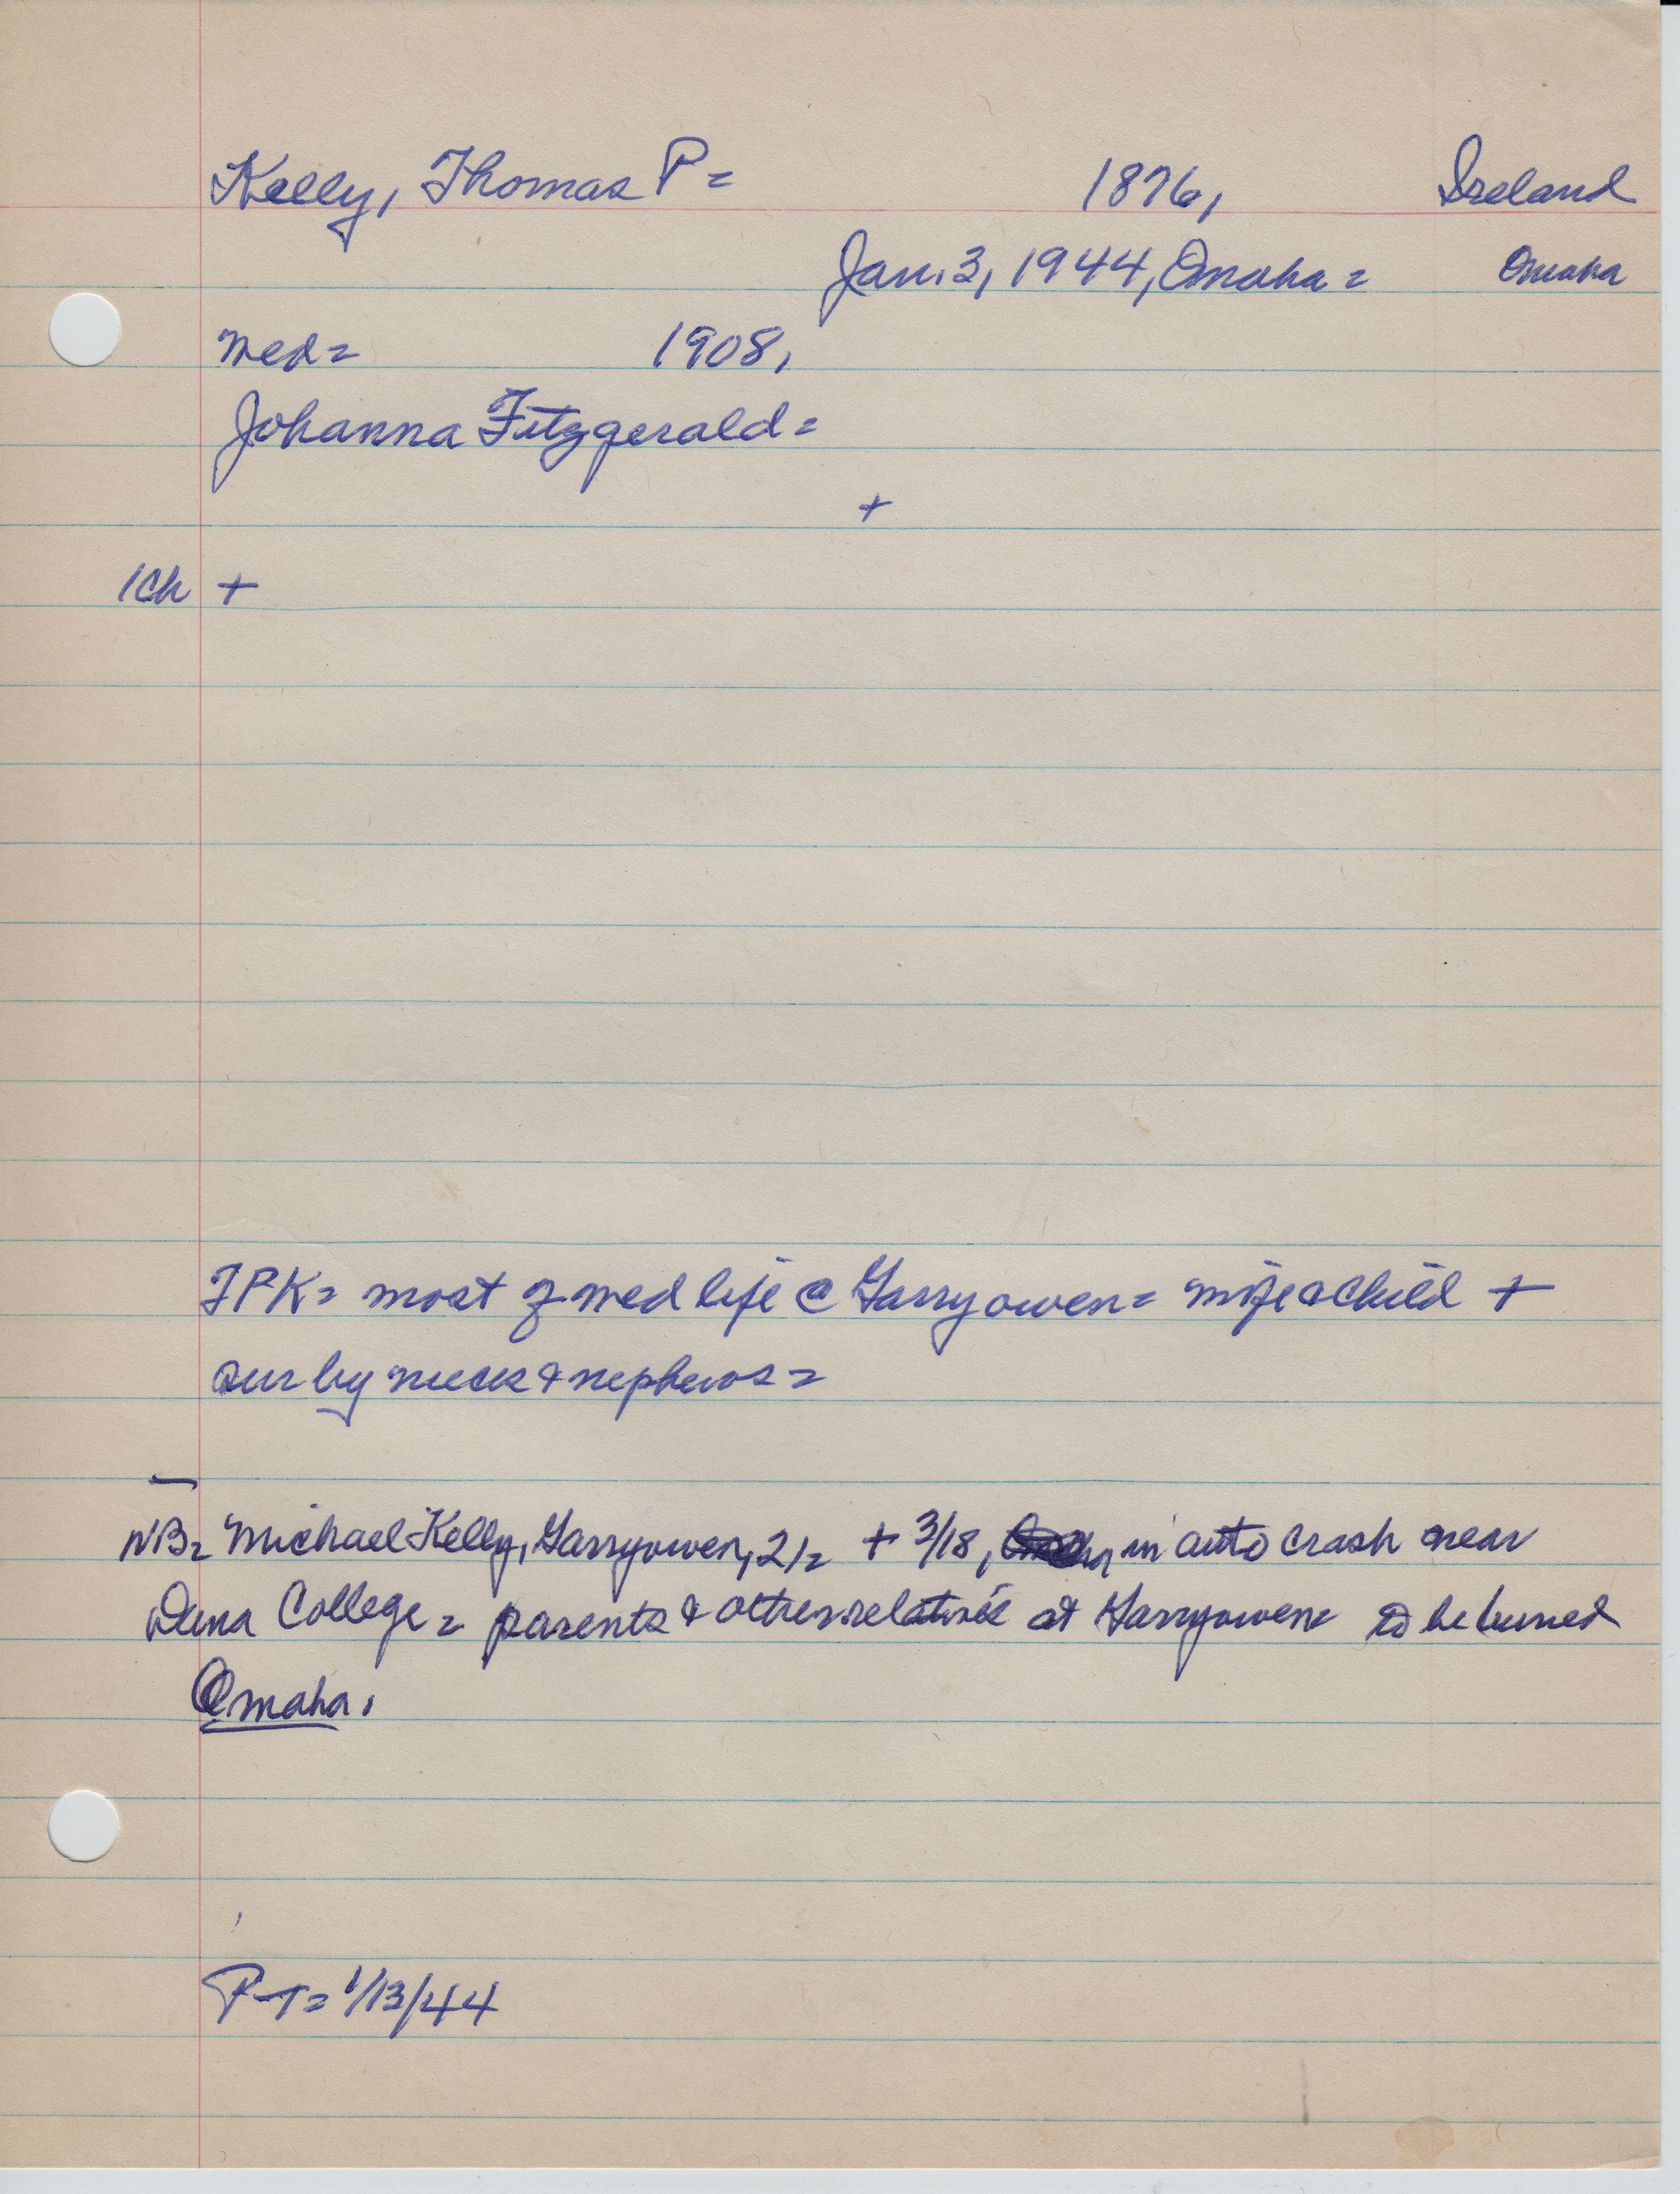 Kelly, Thomas P= 1876, Ireland
Jan. 3, 1944, Omaha= Omaha
med= 1908,
Johanna Fitzgerald=
+
1ch +
TPK= most of med life @ Garryowen= wife & child +
sur by nieces & nephews=
NB= Michael Kelly, Garryowen, 21= + 3/18, in auto crash near
Dana College= parents & other relatives at Garryowen= to be buried
Omaha.
P-T= 1/13/44